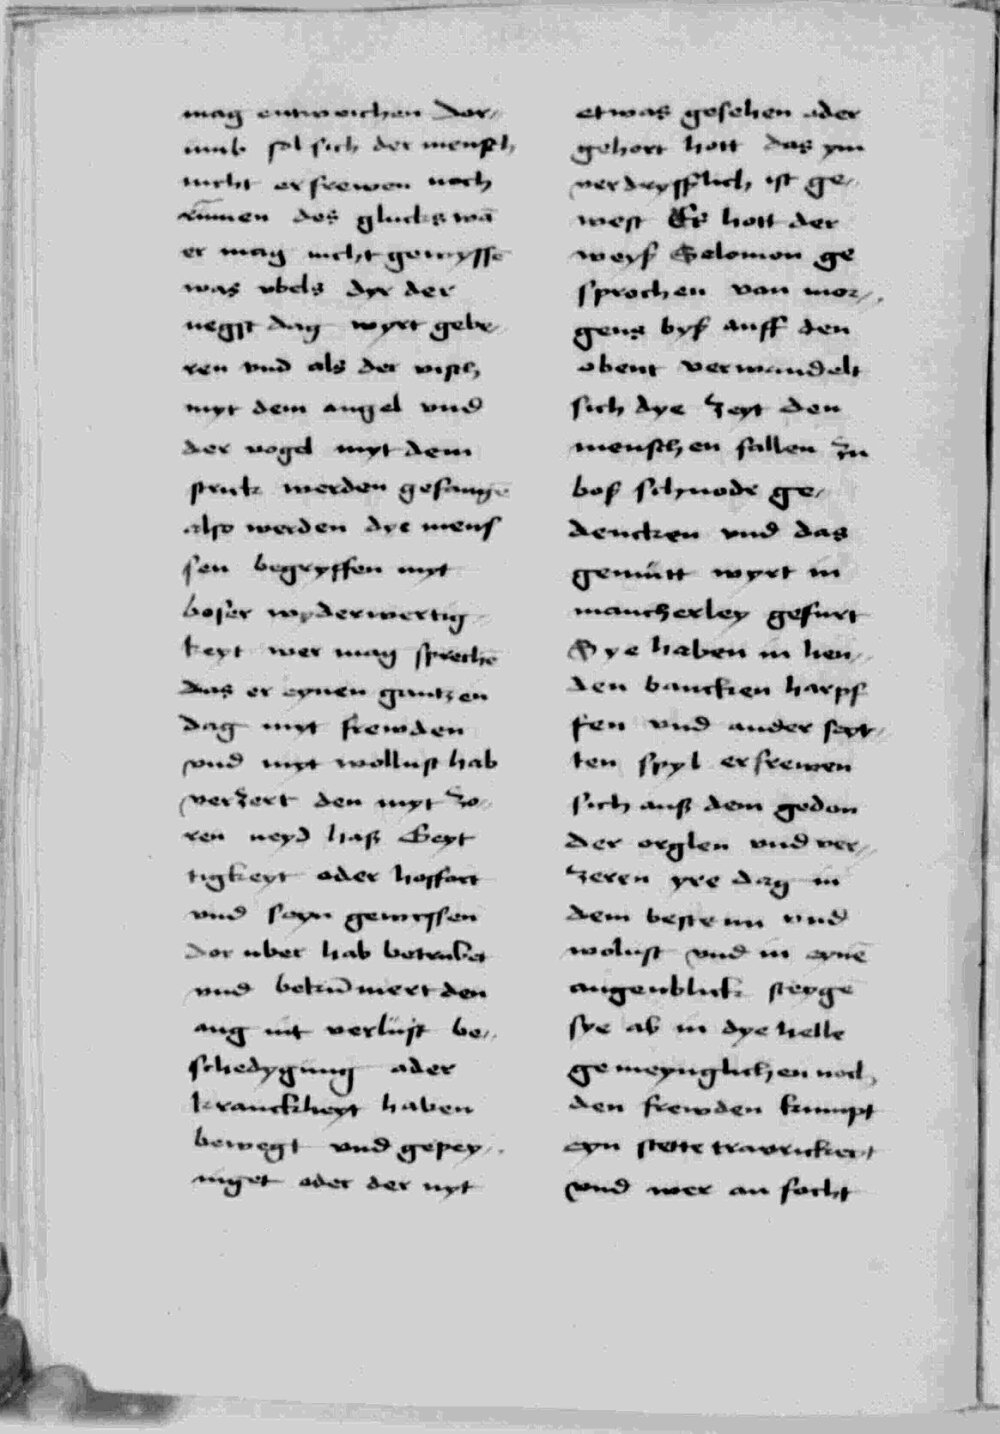 mag entweichen dor//
umb sol sich der mensch
nicht erfrewen noch
rümen des glucks wā
er mag nicht gewyssē
was vbels dyr der
negst dag wyrt gebe//
ren vnd als der visch
myt dem angel vnd
der vogel myt dem
strick werden gefangē
also werden dye mens
sen begryffen myt
boser wyderwertig
keyt wer mag sprechē
das er eynen gantzen
dag myt frewden
vnd myt wollust hab
verzert den myt zo//
ren neyd haß Geyt
tigkeyt oder hoffart
vnd seyn gewyssen
dor uber hab betrubet
vnd bekūmert den
aug nit verlust be//
schedygung oder
kranckheyt haben
bewegt vnd gepey//
niget oder der nyt
etwas gesehen oder
gehort hott das ym
verdryßlich ist ge//
west Es hott der
weyß Salomon ge
sprochen von mor//
gens byß auff den
obent verwandelt
sich dye zeyt den
menschen fallen zu
boß schnode ge//
dencken vnd das
gemütt wyrt in
mancherley gefurt
Sye haben in hen//
den baucken harpf
fen vnd ander seyt//
ten spyl erfrewen
sich auß dem gedon
der orglen vnd ver//
zeren yre dag in
dem besten vnd
wolust vnd in eynē
augenblick steygē
sye ab in dye helle
gemeynglichen noch
den frewden kumpt
eyn stette trawrickeyt
vnd wer an focht